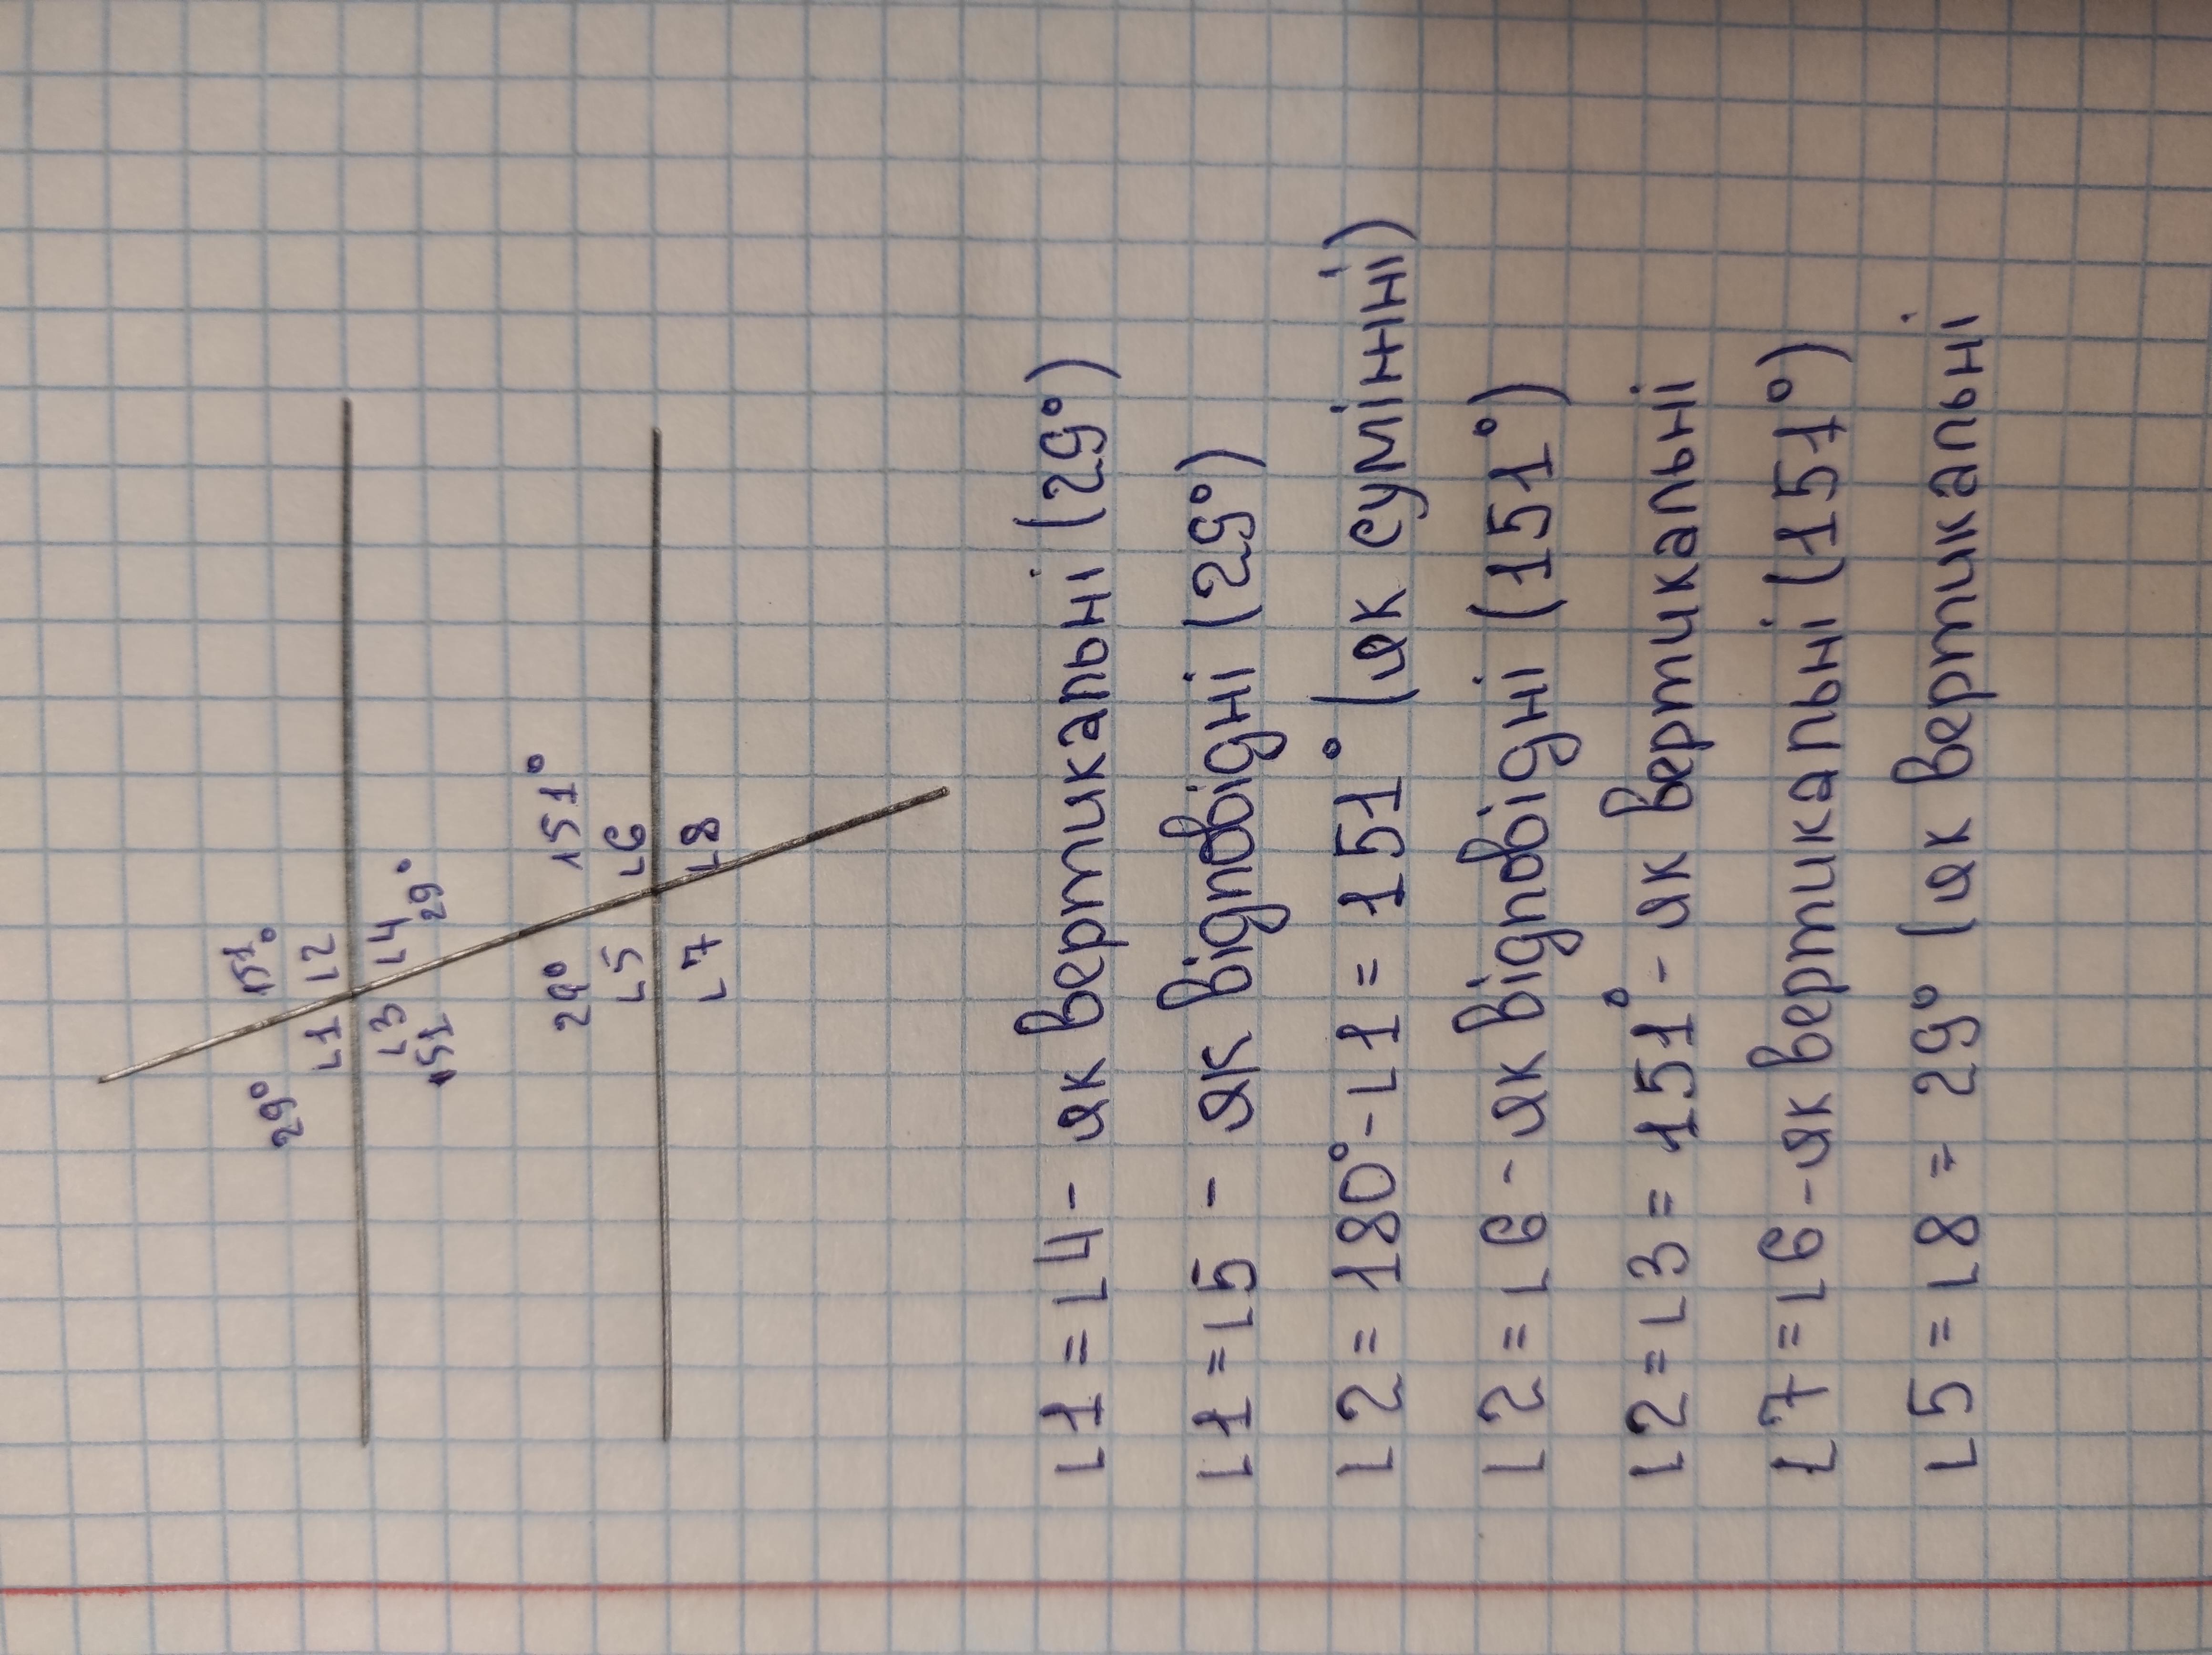 151°
29° ∠1 ∠2
∠3 ∠4
151 29°
29° 151°
∠5 ∠6
∠7 ∠8
∠1 = ∠4 - як вертикальні (29°)
∠1 = ∠5 - як відповідні (29°)
∠2 = 180° - ∠1 = 151° (як суміжні)
∠2 = ∠6 - як відповідні (151°)
∠2 = ∠3 = 151° - як вертикальні
∠7 = ∠6 - як вертикальні (151°)
∠5 = ∠8 = 29° (як вертикальні